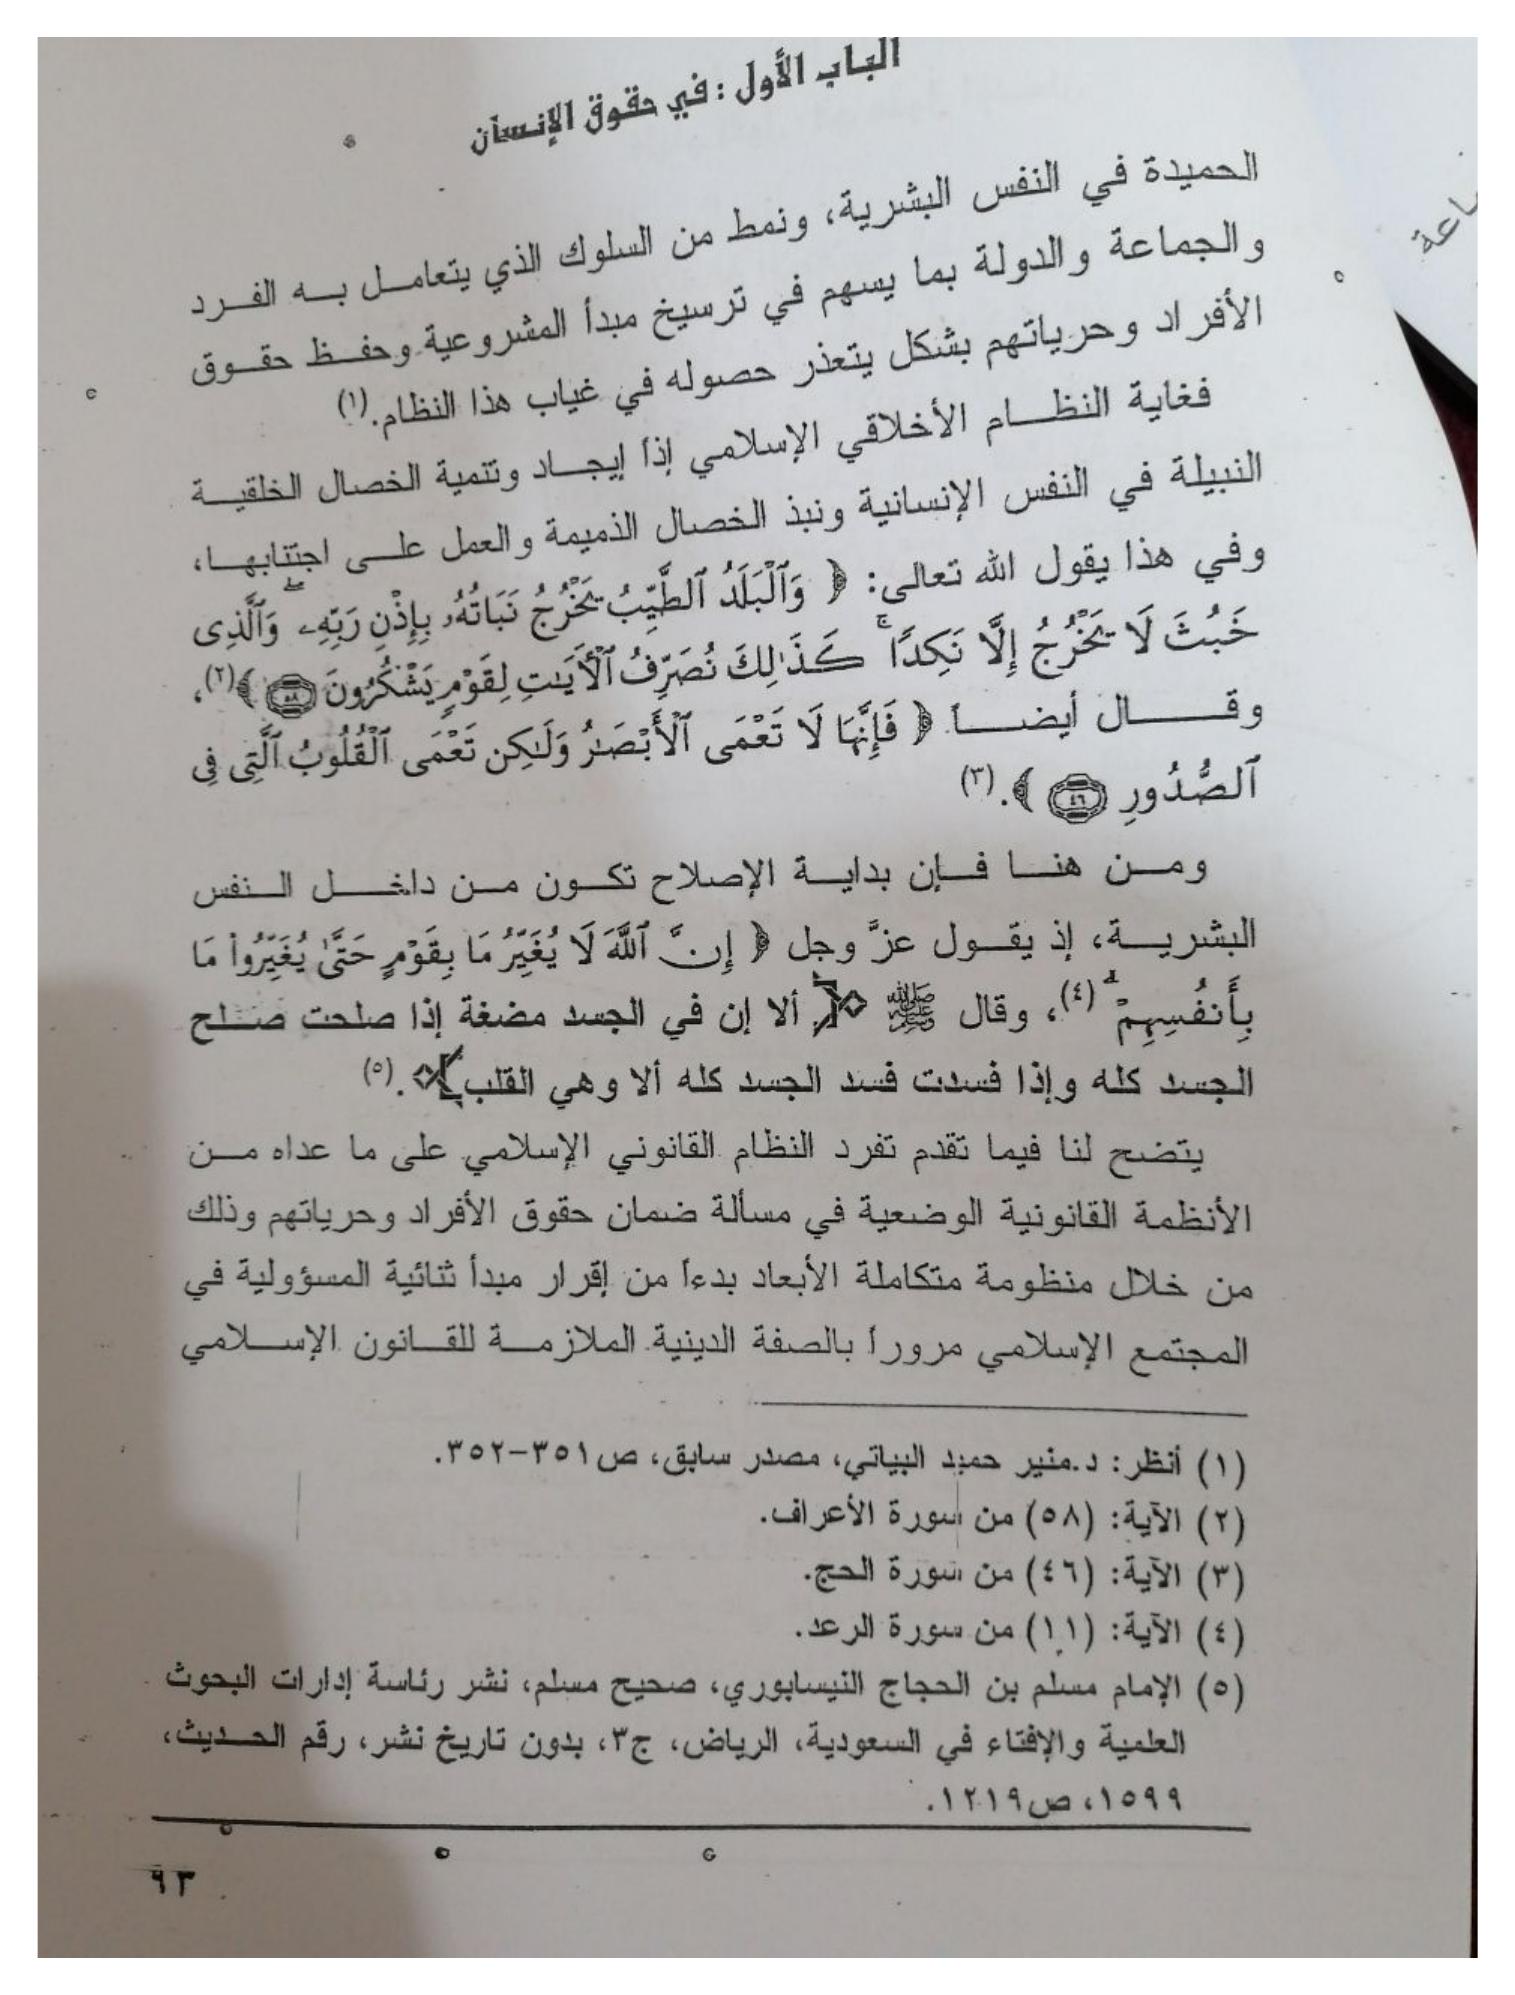 الباب الأول : في حقوق الإنسان
الحميدة في النفس البشرية، ونمط من السلوك الذي يتعامل به الفرد
والجماعة والدولة بما يسهم في ترسيخ مبدأ المشروعية وحفظ حقوق
الأفراد وحرياتهم بشكل يتعذر حصوله في غياب هذا النظام.(١)
فغاية النظام الأخلاقي الإسلامي إذاً إيجاد وتنمية الخصال الخلقية
النبيلة في النفس الإنسانية ونبذ الخصال الذميمة والعمل على اجتنابها،
وفي هذا يقول الله تعالى: ﴿ وَٱلْبَلَدُ ٱلطَّيِّبُ يَخْرُجُ نَبَاتُهُۥ بِإِذْنِ رَبِّهِۦ ۖ وَٱلَّذِى
خَبُثَ لَا يَخْرُجُ إِلَّا نَكِدًا ۚ كَذَٰلِكَ نُصَرِّفُ ٱلْأَيَٰتِ لِقَوْمٍ يَشْكُرُونَ ۝٥٨ ﴾(٢)،
وقال أيضاً ﴿ فَإِنَّهَا لَا تَعْمَى ٱلْأَبْصَٰرُ وَلَٰكِن تَعْمَى ٱلْقُلُوبُ ٱلَّتِى فِى
ٱلصُّدُورِ ۝٤٦ ﴾.(٣)
ومن هنا فإن بداية الإصلاح تكون من داخل النفس
البشرية، إذ يقول عزَّ وجل ﴿ إِنَّ ٱللَّهَ لَا يُغَيِّرُ مَا بِقَوْمٍ حَتَّىٰ يُغَيِّرُوا۟ مَا
بِأَنفُسِهِمْ ۗ (٤)، وقال ﷺ ألا إن في الجسد مضغة إذا صلحت صلح
الجسد كله وإذا فسدت فسد الجسد كله ألا وهي القلب .(٥)
يتضح لنا فيما تقدم تفرد النظام القانوني الإسلامي على ما عداه من
الأنظمة القانونية الوضعية في مسألة ضمان حقوق الأفراد وحرياتهم وذلك
من خلال منظومة متكاملة الأبعاد بدءاً من إقرار مبدأ ثنائية المسؤولية في
المجتمع الإسلامي مروراً بالصفة الدينية الملازمة للقانون الإسلامي
(١) أنظر: د.منير حميد البياتي، مصدر سابق، ص٣٥١-٣٥٢.
(٢) الآية: (٥٨) من سورة الأعراف.
(٣) الآية: (٤٦) من سورة الحج.
(٤) الآية: (١١) من سورة الرعد.
(٥) الإمام مسلم بن الحجاج النيسابوري، صحيح مسلم، نشر رئاسة إدارات البحوث
العلمية والإفتاء في السعودية، الرياض، ج٣، بدون تاريخ نشر، رقم الحديث،
١٥٩٩، ص١٢١٩.
٩٣